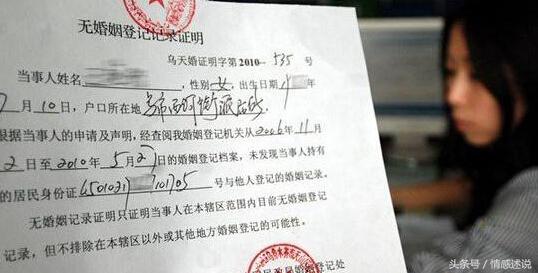 无婚姻登记记录证明
乌天婚证明字第2010-535号
当事人姓名 ，性别 女，出生日期 年
月10日，户口所在地
根据当事人的申请及声明，经查阅我婚姻登记机关从2006年11月
2日至2010年5月27日的婚姻登记档案，未发现当事人持有
的居民身份证 号与他人登记的婚姻记录。
无婚姻记录证明只证明当事人在本辖区范围内目前无婚姻登记
记录，但不排除在本辖区以外或其他地方婚姻登记的可能性。
头条号／情感述说